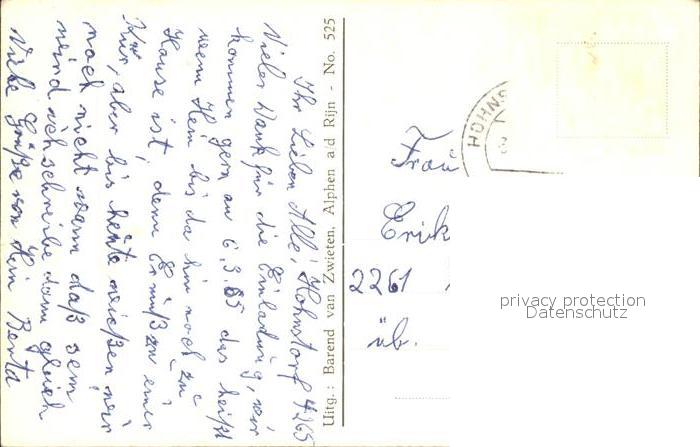 Ihr Lieben Alle, Hohnstorf 4265
Vielen Dank für die Einladung, wir
kommen gern am 6.3.65 das heißt
wenn Hein bis da hin noch zu
Hause ist, denn Er muß zu einer
Kur, aber bis heute wießen wir
noch nicht wann daß sein
wird ich schreibe dann gleich
Viele Grüße von Hein Berta
Uitg.: Barend van Zwieten, Alphen a/d Rijn - No. 525
HOHNS
Frau
Erik
2261
üb.
privacy protection
Datenschutz